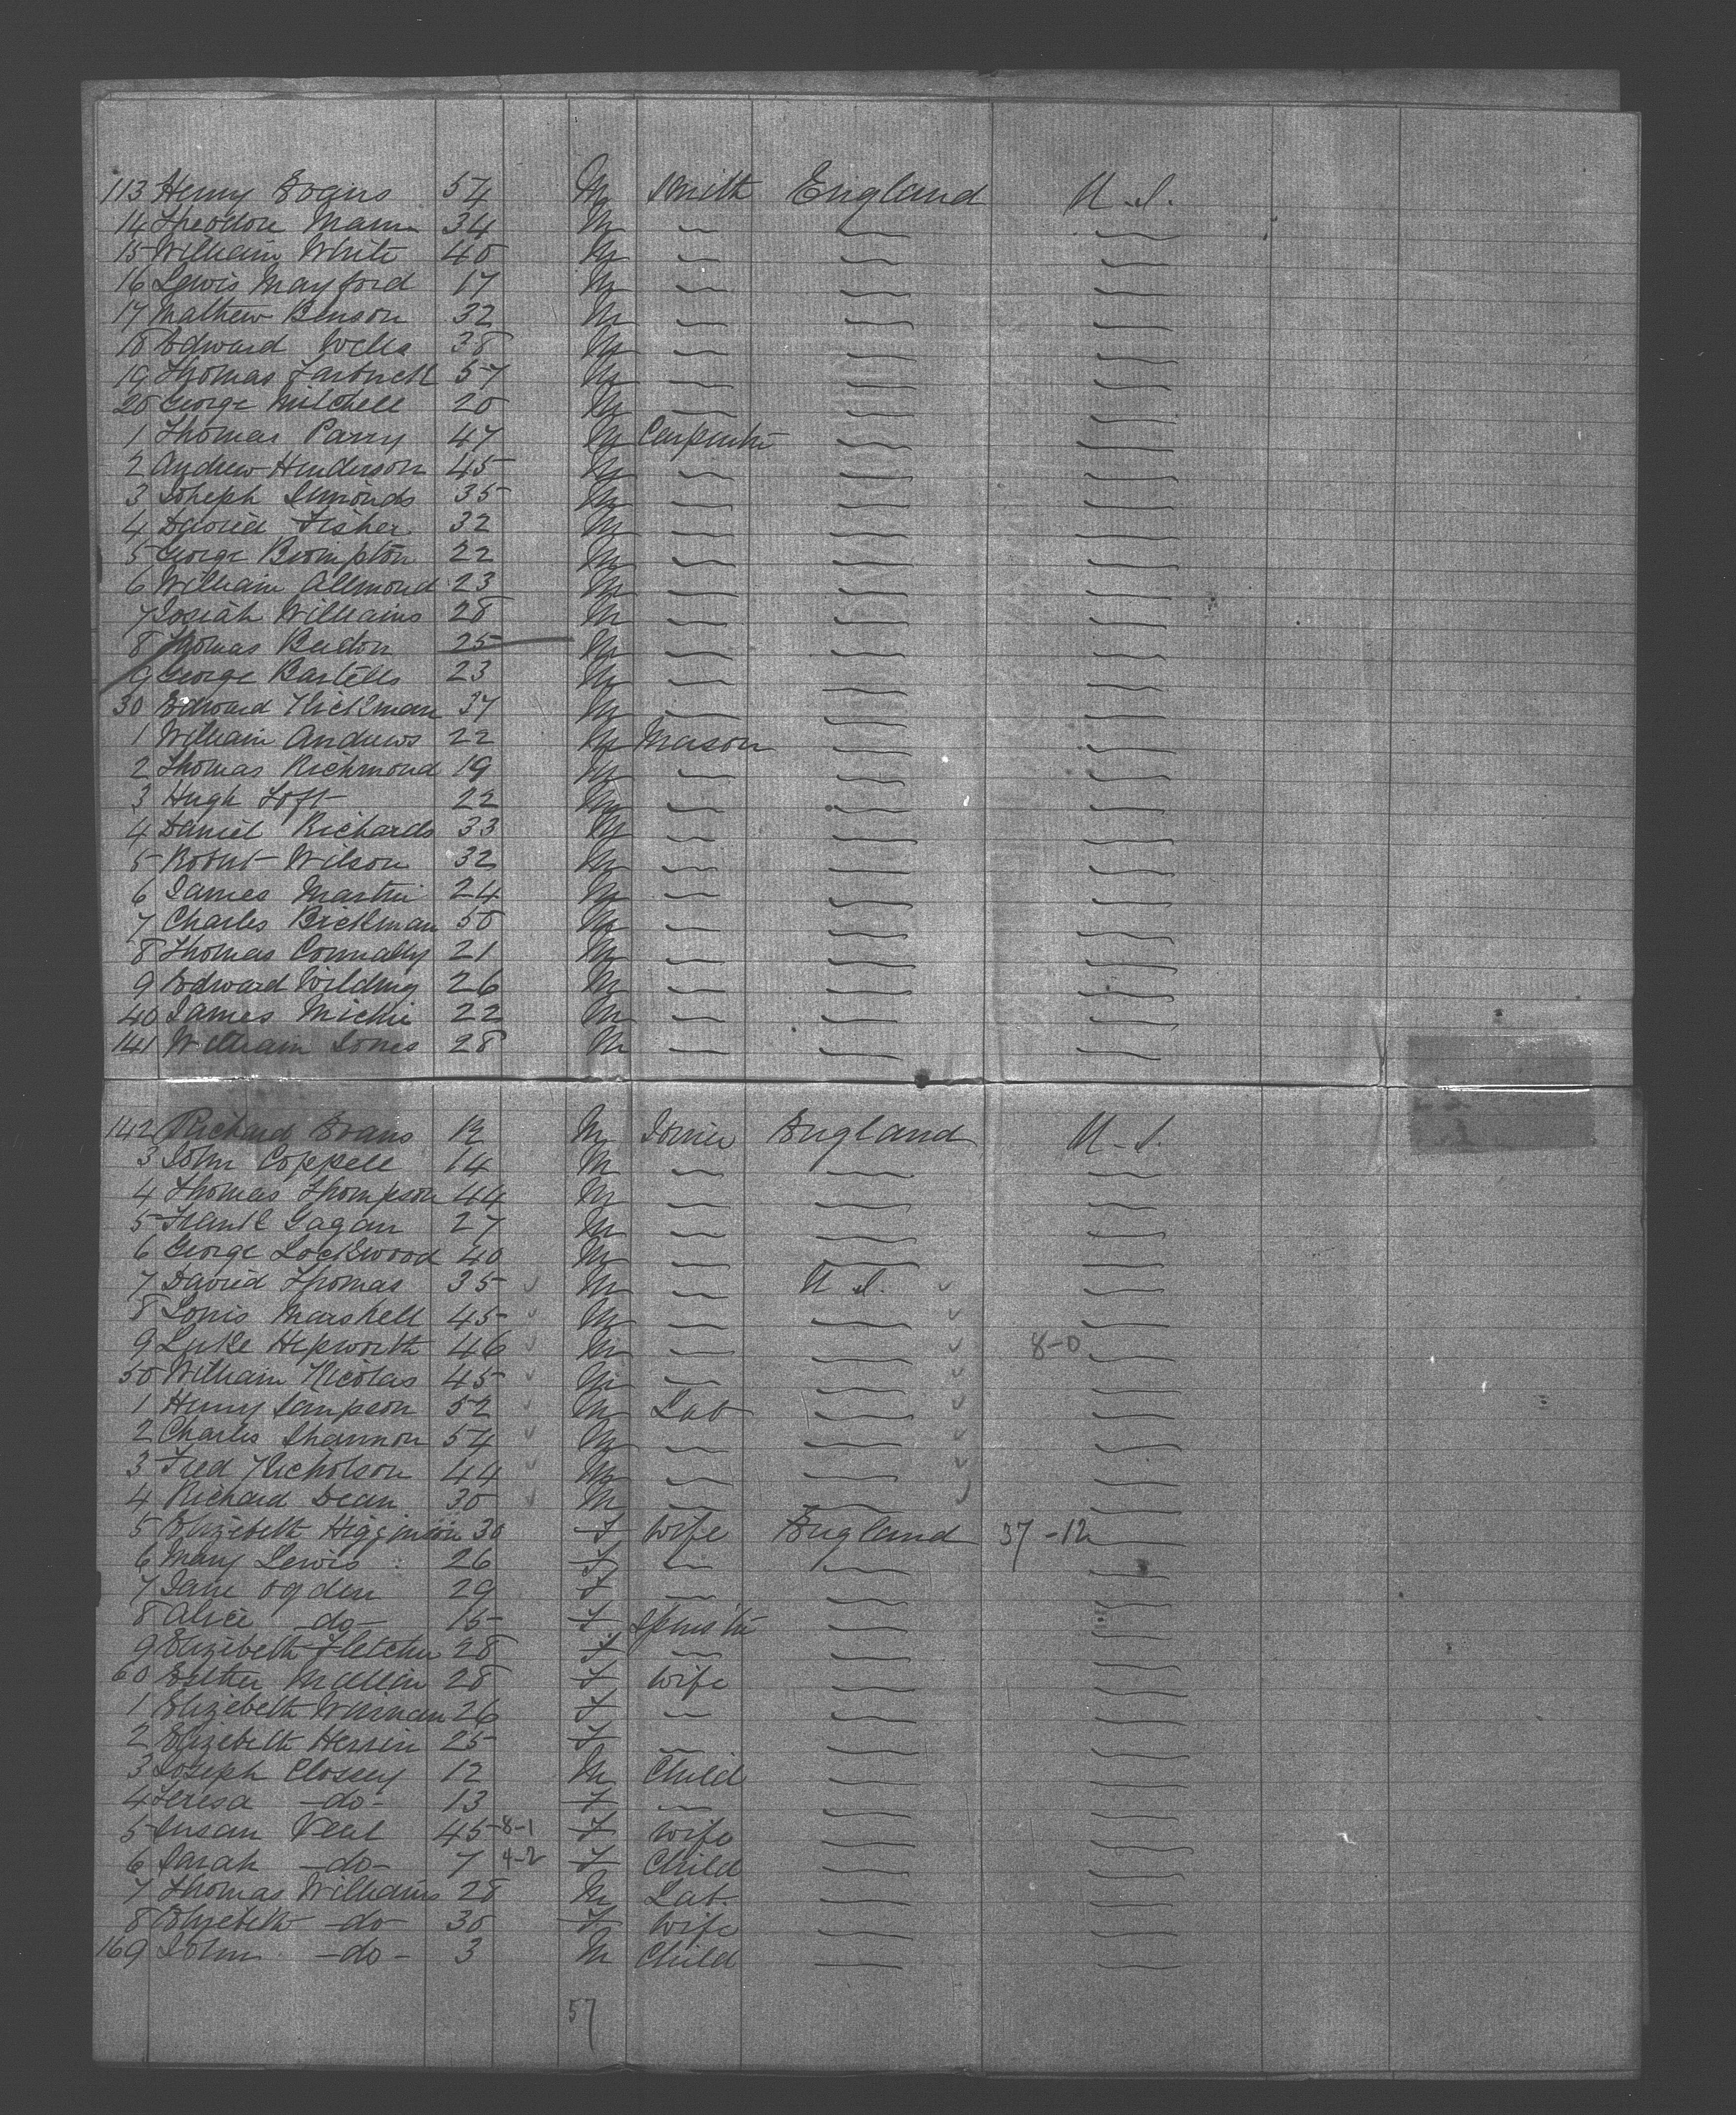 113 Henry Evans 54 M Smith England U.S.
14 Theodore Mann 34 M
15 William White 40 M
16 Lewis Mayford 17 M
17 Mathew Benson 32 M
18 Edward Wells 38 M
19 Thomas 57 M
20 George Mitchell 20 M
1 Thomas Parry 47 M Carpenter
2 Andrew Henderson 45 M
3 Joheph Simonds 35 M
4 David Fisher 32 M
5 George Brompton 22 M
6 William Allmond 23 M
7 Josiah Williams 28 M
8 Thomas 25 M
9 George Bartells 23 M
30 Edward Hickman 37 M
1 William Andrews 22 M Mason
2 Thomas Richmond 19 M
3 Hugh Loft 22 M
4 Daniel Richards 33 M
5 Robert Wilson 32 M
6 James Martin 24 M
7 Charles Brickman 50 M
8 Thomas Connally 21 M
9 Edward Wilding 26 M
40 James Michie 22 M
141 William Jones 28 M
142 Richard Evans 12 M Joiner England U.S.
3 John Coppell 14 M
4 Thomas Thompson 44 M
5 Frank Gagan 27 M
6 George Lockwood 40 M
7 David Thomas 35 M U.S.
8 Louis Marshell 45 M
9 Luke Hepworth 46 M 8-0
50 William Nicolas 45 M
1 Henry Sampson 52 M Lab
2 Charles Shannon 54 M
3 Fred Nicholson 44 M
4 Richard Dean 30 M
5 Elizebeth Higginson 30 F Wife England 37-12
6 Mary Lewis 26 F
7 Jane Ogden 29 F
8 Alice -do- 15 F Spinster
9 Elizebeth Fletcher 28 F
60 Esther 28 F Wife
1 Elizebeth 26 F
2 Elizebeth Herrin 25 F
3 Joseph Clossey 12 M Child
4 Teresa -do- 13 F
5 Susan Veal 45 8-1 F Wife
6 Sarah -do- 7 4-2 F Child
7 Thomas Williams 28 M Lab.
8 Elizebeth -do- 30 F Wife
169 John -do- 3 M Child
57